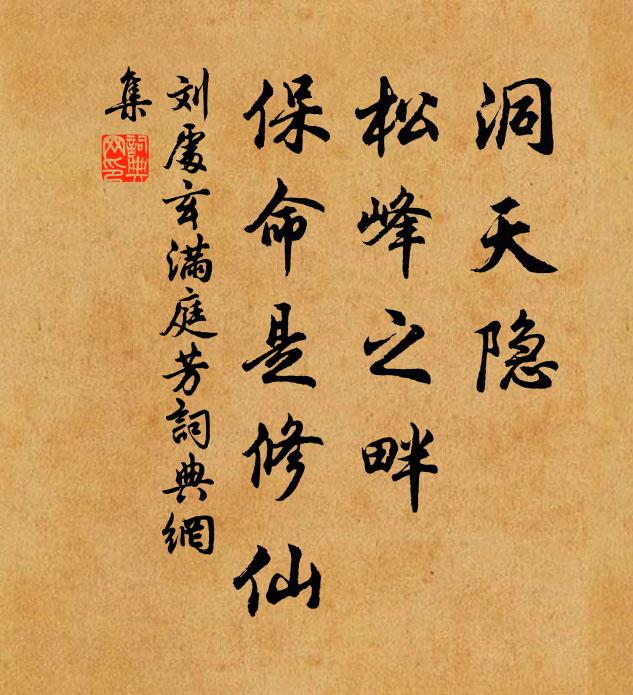 洞天隐
松峰之畔
保命是修仙
刘處玄满庭芳詞典網
集
詞典網印